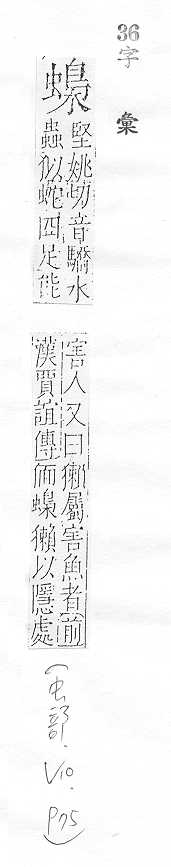 36
字彙
蟂
堅姚切音驕水
蟲似蛇四足能
害人又曰獺屬害魚者前
漢賈誼傳偭蟂獺以隱處
(虫部. V10. P75)